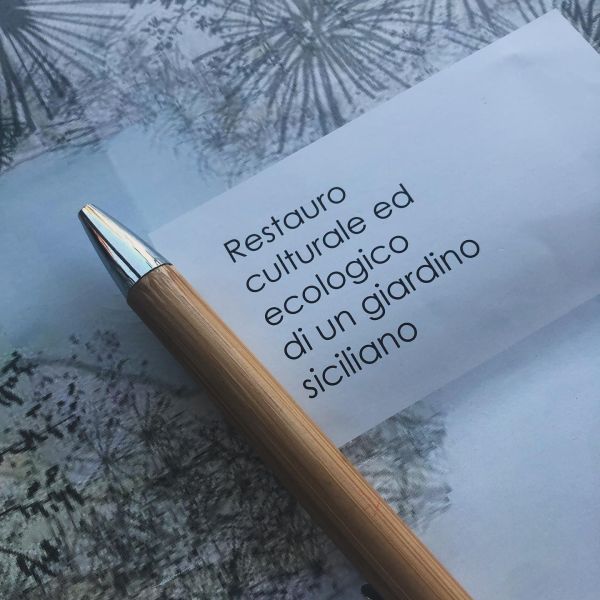 Restauro
culturale ed
ecologico
di un giardino
siciliano